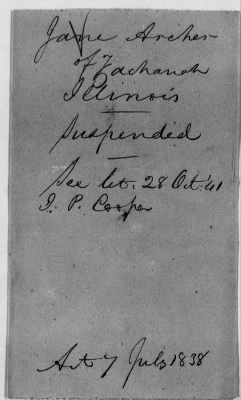 Jane Archer
of Zachariah
Illinois
Suspended
See let. 28 Oct. 41
I. P. Cooper
Act 7 July 1838